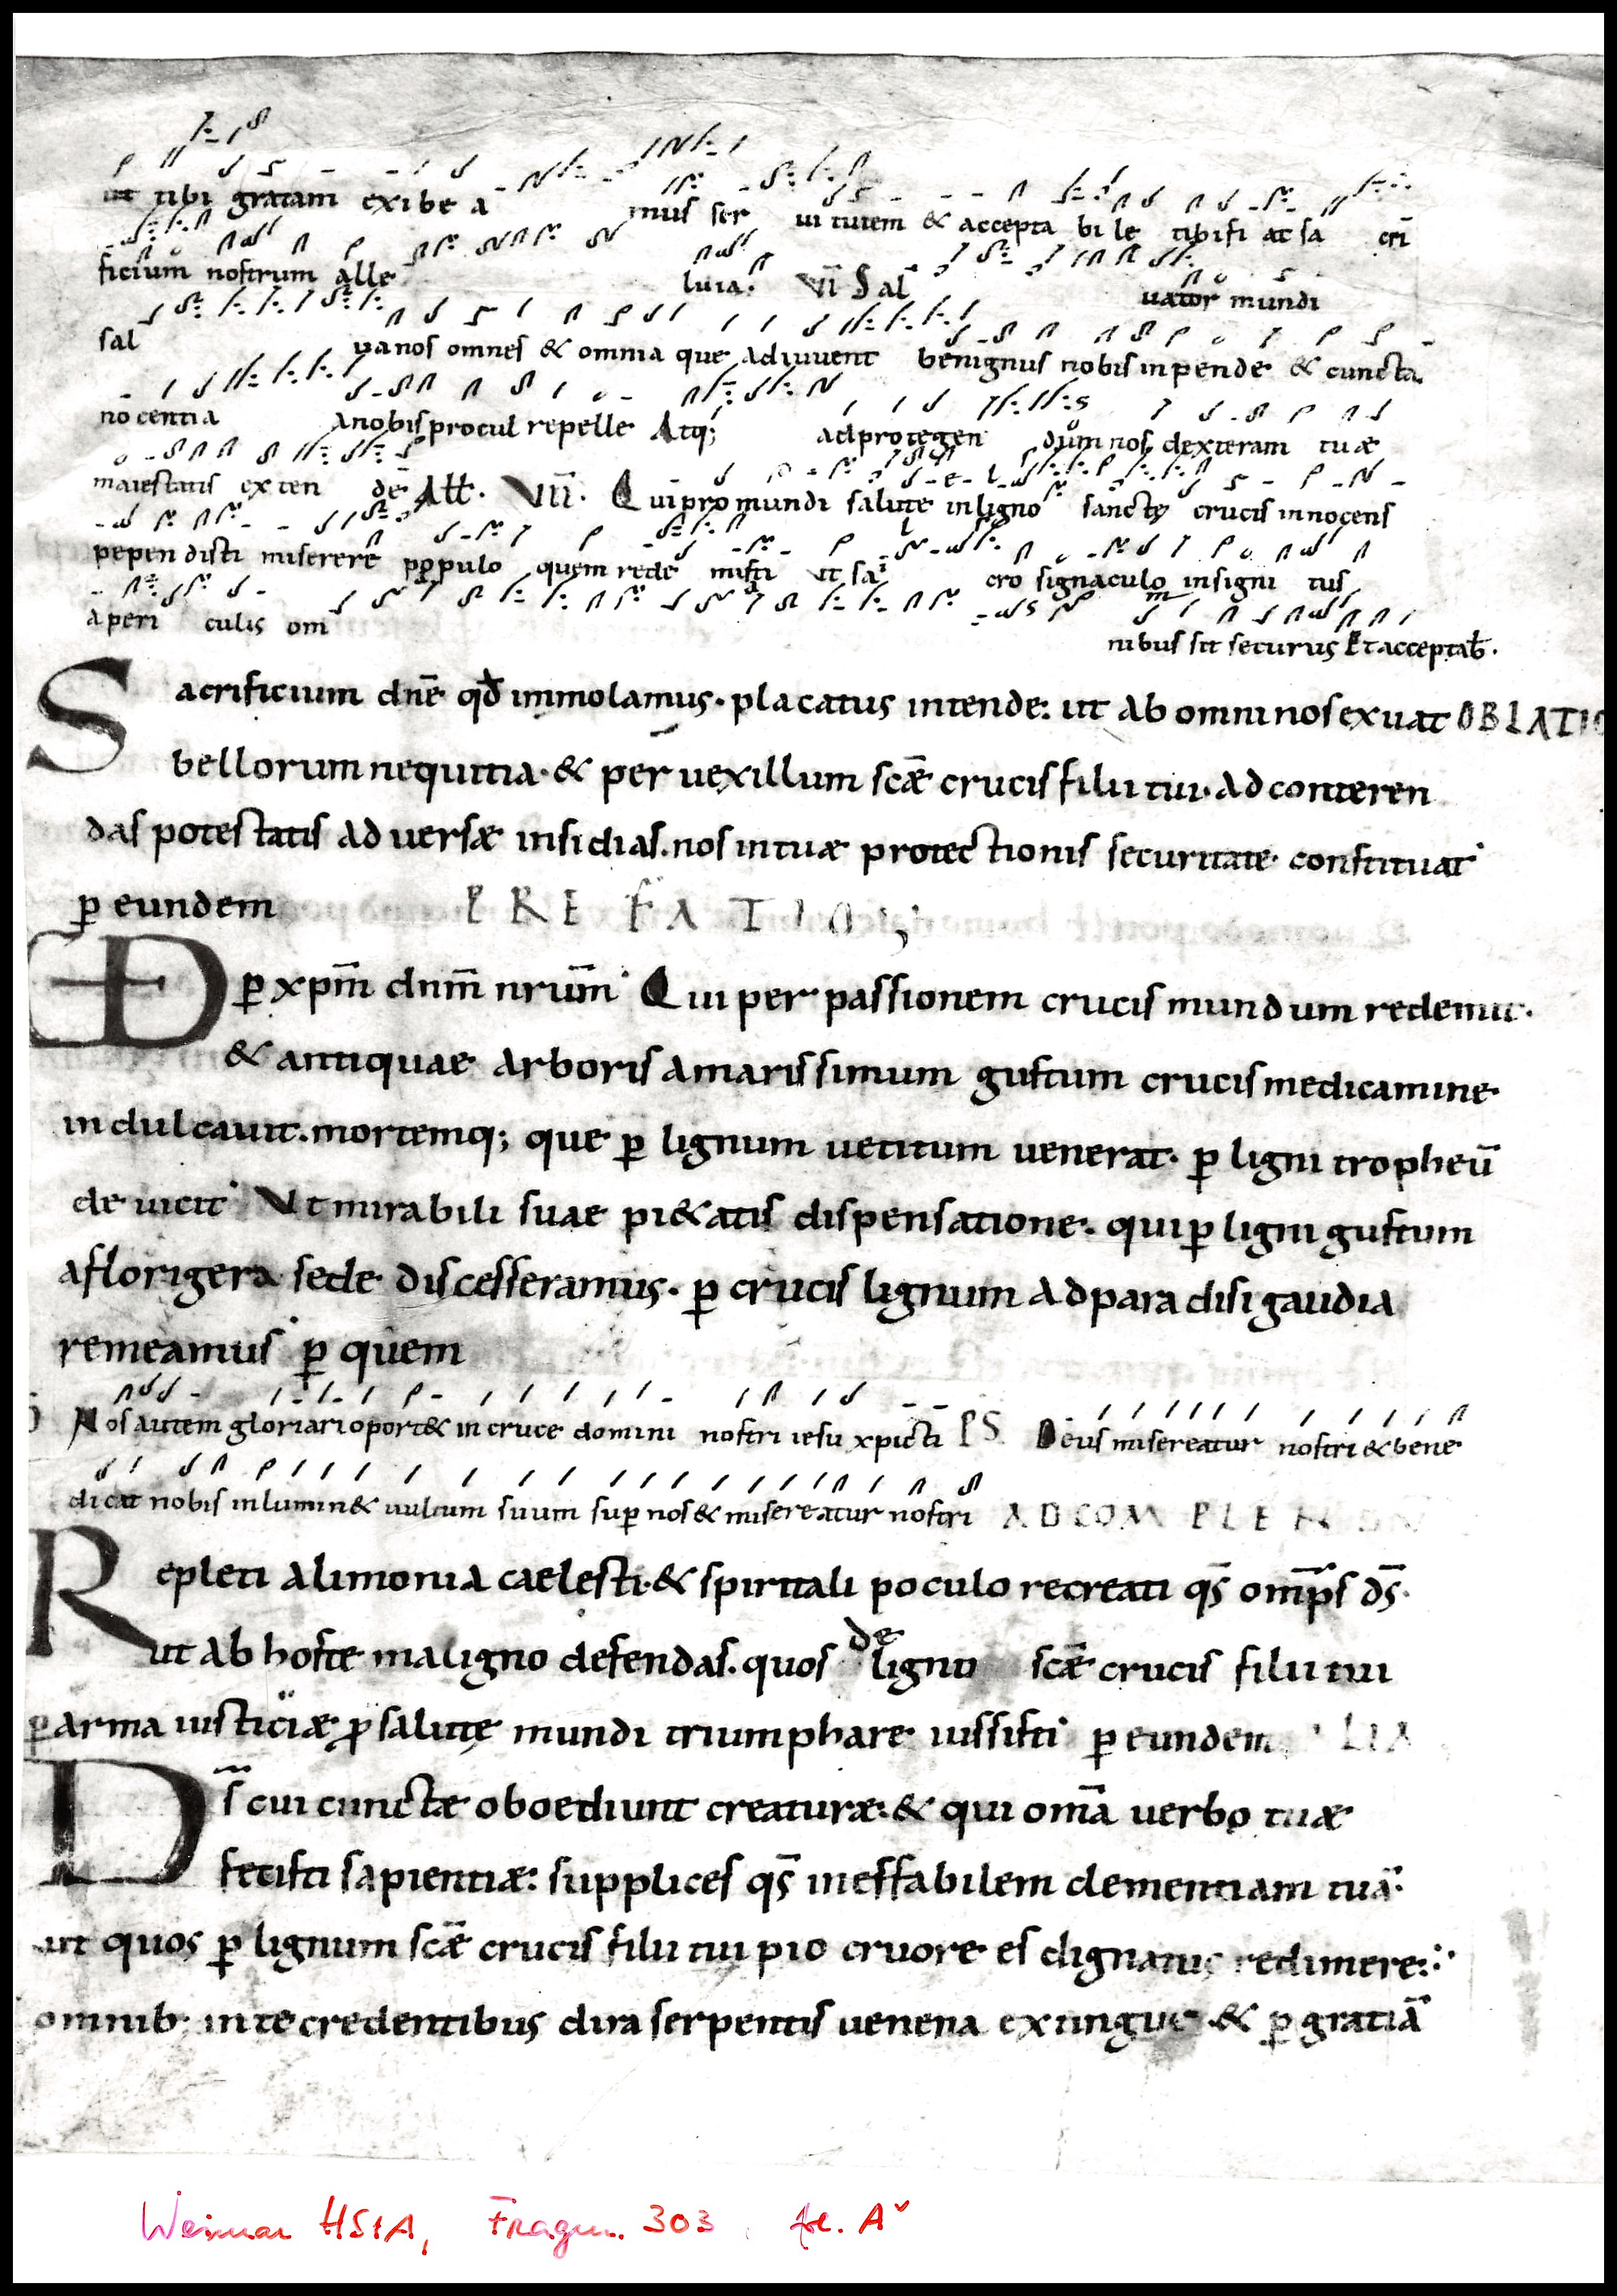 ut tibi gratam exibe a mus ser ui tutem & accepta bi le tibi fi at sa cri
ficium nostrum alle luia. VI Sal uator mundi
sal ua nos omnes & omnia que adiuuent benignus nobis inpende & cuncta
nocentia a nobis procul repelle Atq; ad protegen dum nos dexteram tuæ
maiestatis exten de Alł. VII. Qui pro mundi salute in ligno sanctę crucis innocens
pependisti miserere ꝓpulo quem rede misti ut sa cro signaculo insigni tus
a peri culis om nibus sit securus Et acceptab̄.
Sacrificium dnē qđ immolamus. placatus intende: ut ab omni nos exuat OBLATIO
bellorum nequitia. & per uexillum scǣ crucis filii tui. ad conteren
das potestatis aduersæ insidias. nos in tuæ protectionis securitate constituat
ꝑ eundem PREFATIO
ꝑ xp̄m dnm̄ nrūm Qui per passionem crucis mundum redemit.
& antiquae arboris amarissimum gustum crucis medicamine
indulcauit. mortemq; que ꝑ lignum uetitum uenerat. ꝑ ligni tropheū
deuicit Ut mirabili suae pi&atis dispensatione. qui ꝑ ligni gustum
a florigera sede discesseramus. ꝑ crucis lignum ad paradisi gaudia
remeamus ꝑ quem
Nos autem gloriari oport& in cruce domini nostri iesu xpicti PS Deus misereatur nostri & bene
dicat nobis inlumin& uultum suum suꝑ nos & misereatur nostri AD COMPLEN
Repleti alimonia caelesti. & spiritali poculo recreati qs̄ omp̄s ds̄.
ut ab hoste maligno defendas. quos de ligno scǣ crucis filii tui
ꝑ arma iusticiæ ꝓ salute mundi triumphare iussisti ꝑ eundem LIA
Ds̄ cui cunctæ oboediunt creaturæ: & qui omā uerbo tuæ
fecisti sapientiæ: supplices qs̄ ineffabilem clementiam tuā.
ut quos ꝑ lignum scǣ crucis filii tui pio cruore es dignatus redimere:
omnib; in te credentibus dira serpentis uenena extingue & ꝑ gratiā
Weimar HStA, Fragm. 303, fol. Av